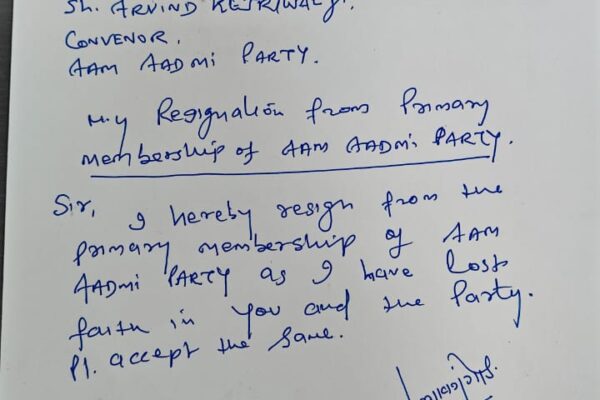 Sh. ARVIND KEJRIWAL ji.
CONVENOR.
AAM AADMI PARTY.
My Resignation from Primary
membership of AAM AADMI PARTY.
Sir,
I hereby resign from the
primary membership of AAM
AADMI PARTY as I have lost
faith in you and the Party.
Pl. accept the same.